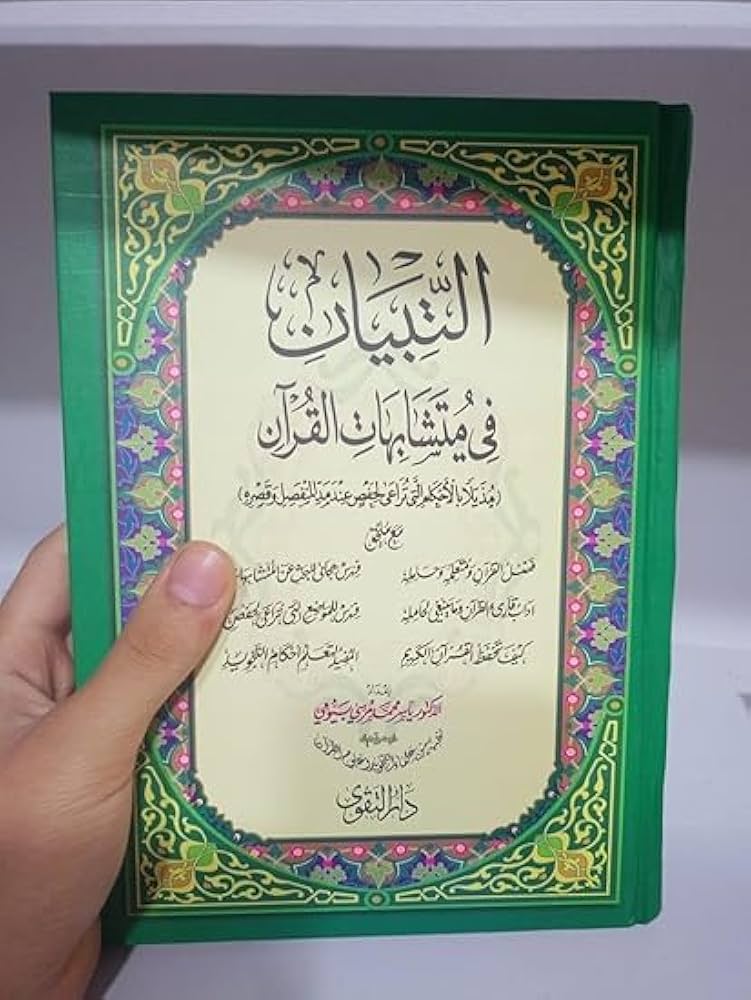 التِّبْيَان
فِي مُتَشَابِهَاتِ القُرْآن
(مُذَيَّلًا بِالأَحْكَامِ الَّتي تُرَاعَى لِحَفْصٍ عِندَ مَدِّ المُنْفَصِلِ وَقَصْرِهِ)
مَعَ مُلحَق
فَضْلُ القُرْآنِ وَمُتَعَلِّمِهِ وَحَامِلِهِ فهرس هجائي للبحث عن المتشابهات
آداب قارئ القرآن وما ينبغي لحامله فهرس للمواضع التي تراعى لحفص
كيف تحفظ القرآن الكريم المفيد لتعلم أحكام التجويد
إعداد
الدكتور ياسر محمد مرسي بيومي
دار التقوى